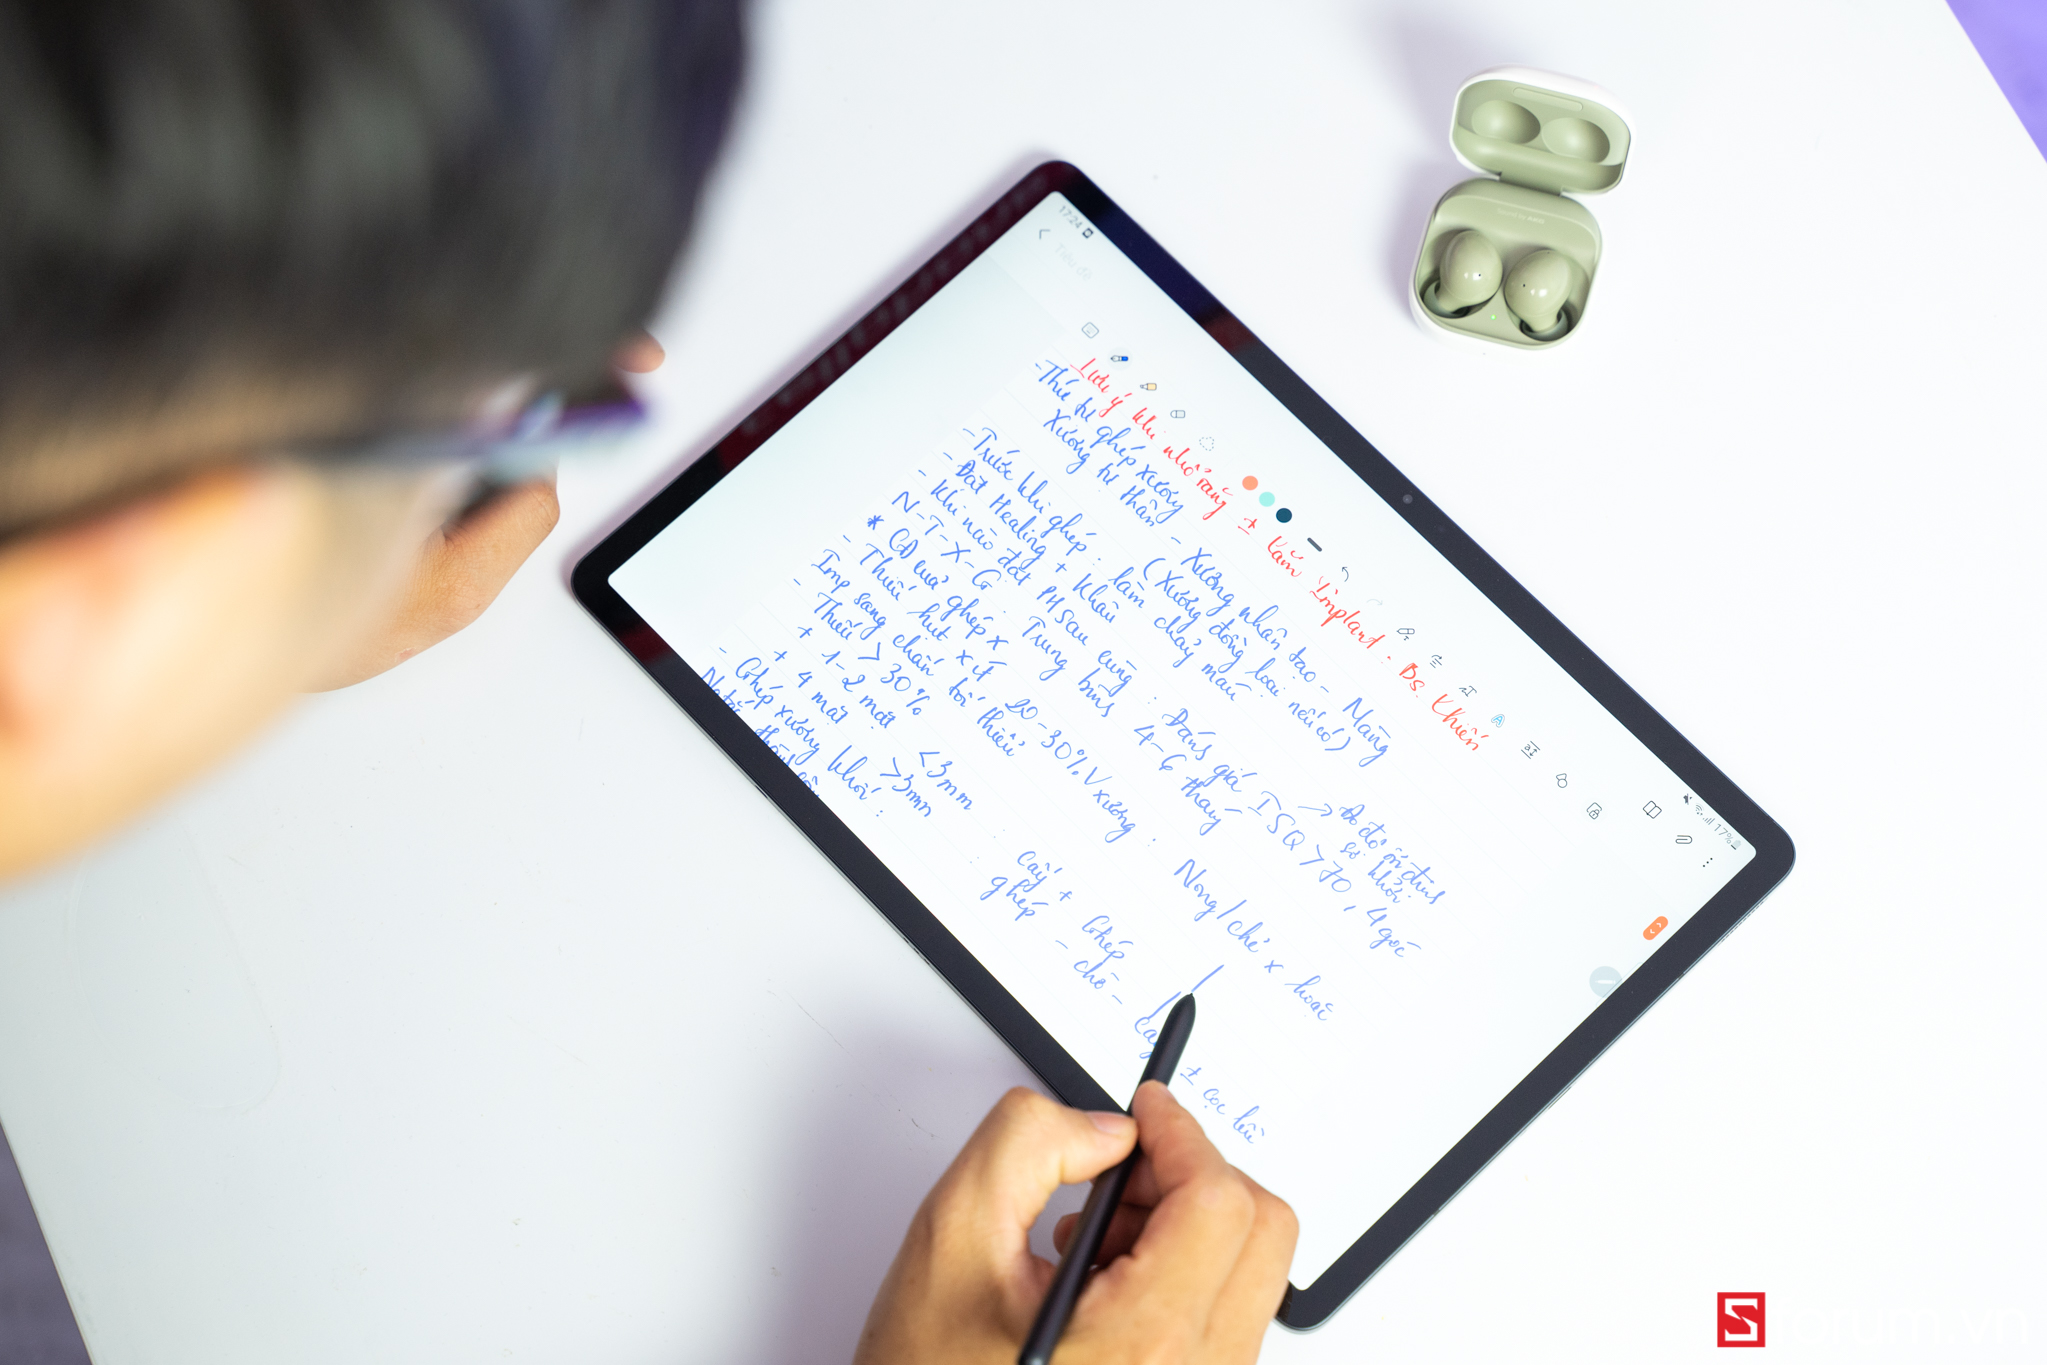 17:24
17%
Tiêu đề
Lưu ý khi nhổ răng ± cắm Implant: Bs. Khiến
- Thứ tự ghép xương - Xương nhân tạo - Màng
Xương tự thân (Xương đồng loại nếu có)
- Trước khi ghép: làm chảy máu
- Đặt Healing + Khâu
- Khi nào đặt PH sau cùng: Đánh giá ISQ > 70, 4 góc
→ Đo độ ổn định sơ khởi
N-T-X-G: Trung bình 4-6 tháng
* CĐ lưu ghép x
- Thiếu hút xít 20-30% V xương: Nong/chẻ x hoặc
Imp sang chấn tối thiểu
- Thiếu > 30%
+ 1-2 mặt < 3mm : Cấy + Ghép
+ 4 mặt > 3mm : ghép - chờ - Cấy
- Ghép xương khối: ± cọc lều
S forum.vn